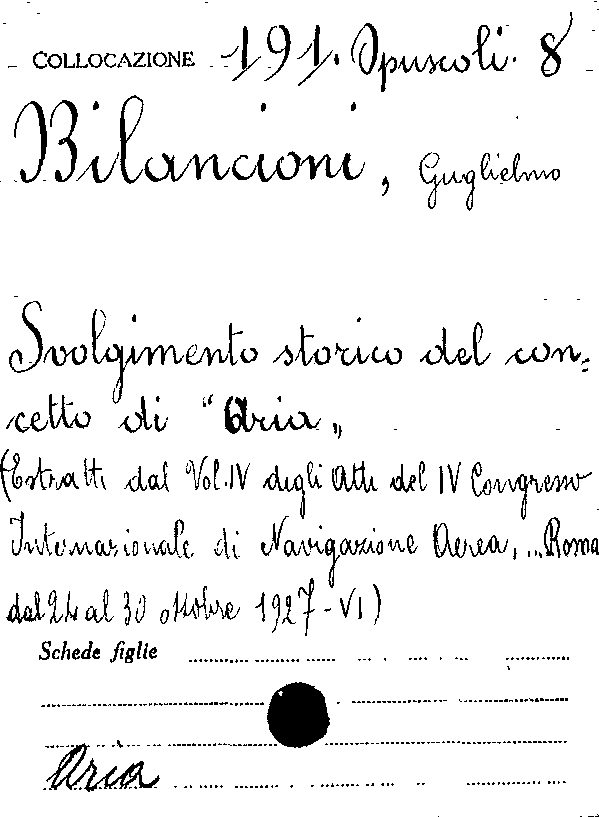 COLLOCAZIONE 191. Opuscoli. 8
Bilancioni, Guglielmo
Svolgimento storico del con=
cetto di "Aria„
(Estratti dal Vol. IV degli Atti del IV Congresso
Internazionale di Navigazione Aerea, ... Roma
dal 24 al 30 ottobre 1927 - VI)
Schede figlie
Aria